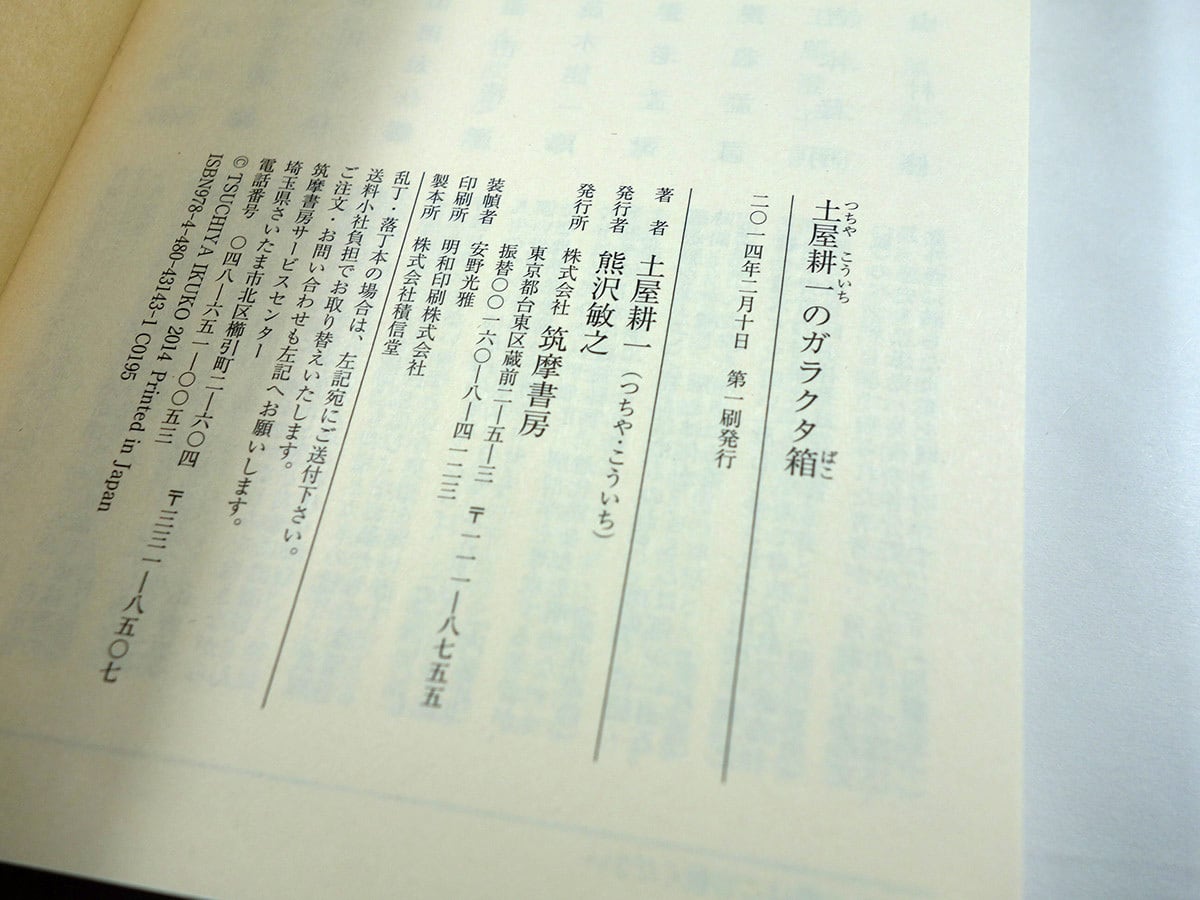 土屋耕一のガラクタ箱
つちや こういち
ばこ
二〇一四年二月十日 第一刷発行
著者 土屋耕一（つちや・こういち）
発行者 熊沢敏之
発行所 株式会社 筑摩書房
東京都台東区蔵前二―五―三 〒一一一―八七五五
振替〇〇一六〇―八―四一二三
装幀者 安野光雅
印刷所 明和印刷株式会社
製本所 株式会社積信堂
乱丁・落丁本の場合は、左記宛にご送付下さい。
送料小社負担でお取り替えいたします。
ご注文・お問い合わせも左記へお願いします。
筑摩書房サービスセンター
埼玉県さいたま市北区櫛引町二―六〇四 〒三三一―八五〇七
電話番号 〇四八―六五一―〇〇五三
© TSUCHIYA IKUKO 2014 Printed in Japan
ISBN978-4-480-43143-1 C0195